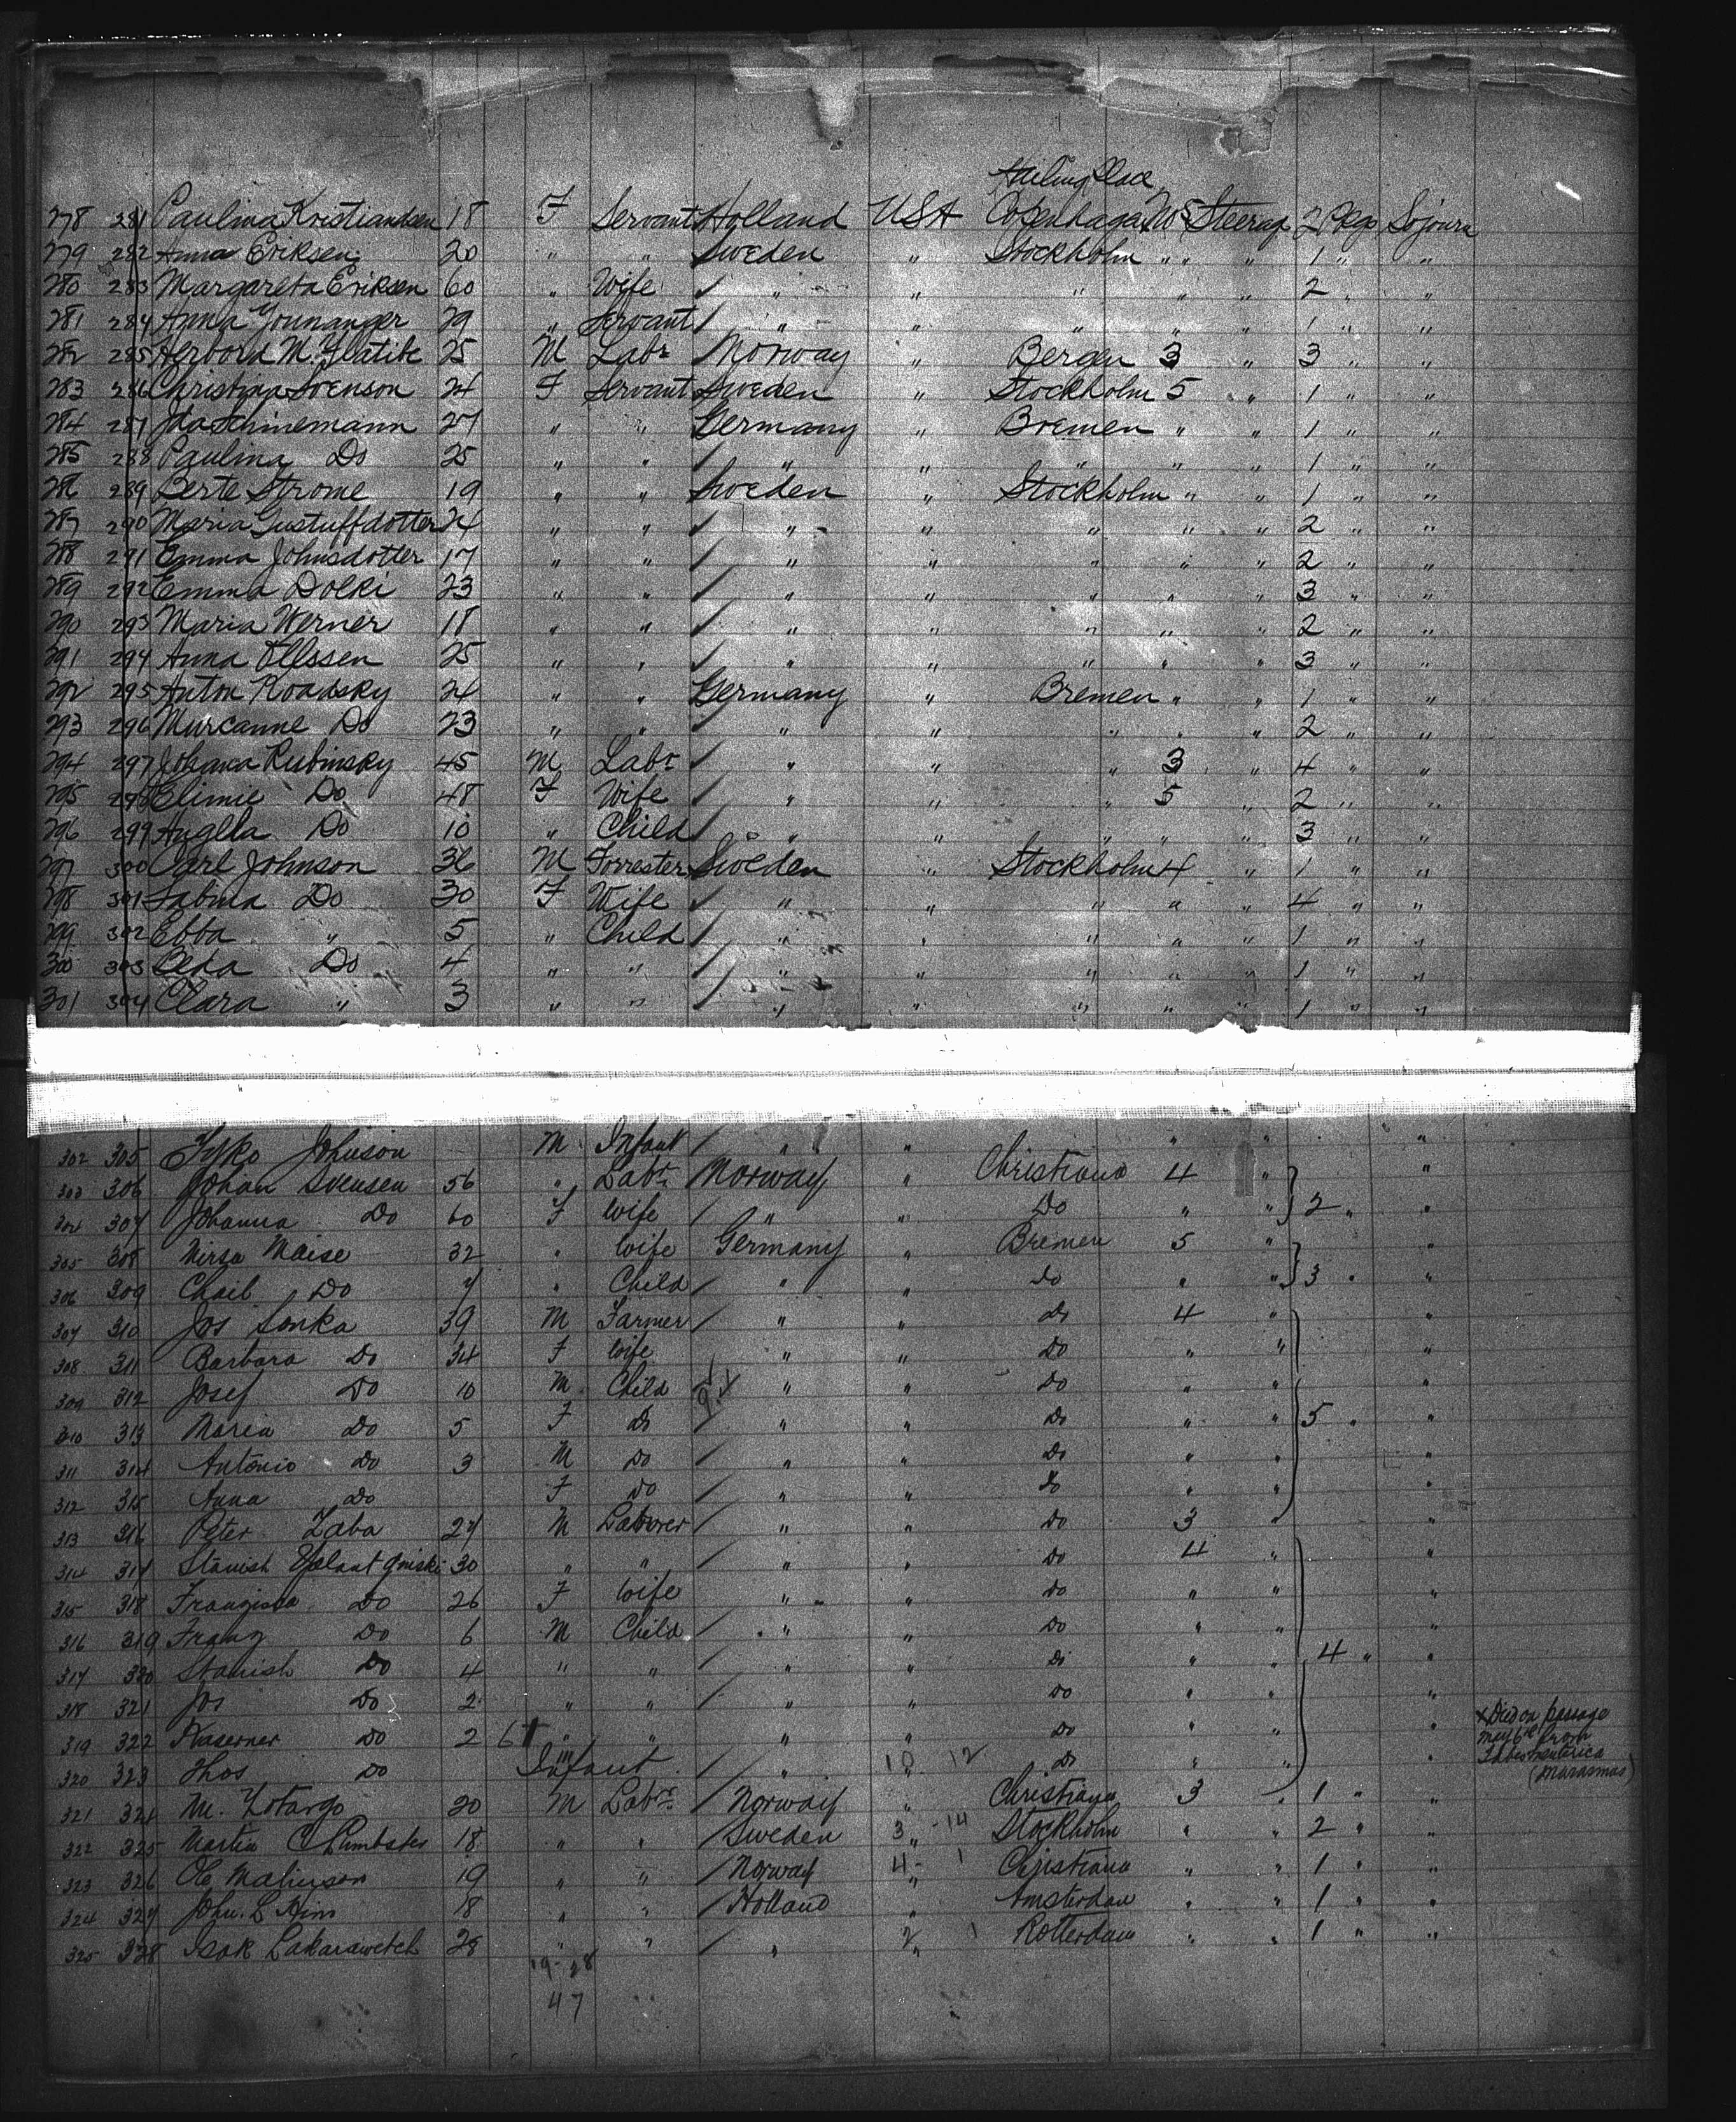 Hailing Place
278 281 Paulina Kristiandsen 18 F Servant Holland USA Copenhagen No 5 Steerage 2 Pkgs Sojourn
279 282 Anna Eriksen 20 " " Sweden " Stockholm " " " 1 " "
280 283 Margareta Eriksen 60 " Wife " " " " " 2 " "
281 284 Anna 29 " Servant " " " " " 1 " "
282 285 M. 25 M Labr Norway " Bergen 3 " 3 " "
283 286 Christina Svenson 24 F Servant Sweden " Stockholm 5 " 1 " "
284 287 Ida Schinemann 27 " " Germany " Bremen " " 1 " "
285 288 Paulina Do 25 " " " " " " " 1 " "
286 289 Berte Strome 19 " " Sweden " Stockholm " " 1 " "
287 290 Maria Gustuffdotter 24 " " " " " " " 2 " "
288 291 Emma Johnsdotter 17 " " " " " " " 2 " "
289 292 Emma Dolki 23 " " " " " " " 3 " "
290 293 Maria Werner 18 " " " " " " " 2 " "
291 294 Anna Ollssen 25 " " " " " " " 3 " "
292 295 Anton Roadsky 24 " " Germany " Bremen " " 1 " "
293 296 Murcanne Do 23 " " " " " " " 2 " "
294 297 Rubinsky 45 M Labr " " " 3 " 4 " "
295 298 Elimie Do 48 F Wife " " " 5 " 2 " "
296 299 Auglla Do 10 " Child " " " " " 3 " "
297 300 Carl Johnson 36 M Forrester Sweden " Stockholm 4 " 1 " "
298 301 Sabina Do 30 F Wife " " " " " 4 " "
299 302 Ebba " 5 " Child " " " " " 1 " "
300 303 Beda Do 4 " " " " " " " 1 " "
301 304 Clara " 3 " " " " " " " 1 " "
302 305 Tyko Johnson M Infant " " " " "
303 306 Johan Svensen 56 " Labr Norway " Christiana 4 " "
304 307 Johanna Do 60 F Wife " " Do " " 2 " "
305 308 Mirsa Maise 32 " Wife Germany " Bremen 5 " "
306 309 Chail Do 7 " Child " " Do " " 3 " "
307 310 Jos Sonka 39 M Farmer " " Do 4 " "
308 311 Barbara Do 34 F Wife " " Do " " "
309 312 Josef Do 10 M Child " " Do " " "
310 313 Maria Do 5 F Do " " Do " " 5 " "
311 314 Antonio Do 3 M Do " " Do " " "
312 315 Anna Do F Do " " Do " " "
313 316 Peter Zaba 27 M Laborer " " Do 3 " "
314 317 Stanish 30 " " " " Do 4 " "
315 318 Franzisca Do 26 F Wife " " Do " " "
316 319 Franz Do 6 M Child " " Do " " "
317 320 Stanish Do 4 " " " " Do " " 4 " "
318 321 Jos Do 2 " " " " Do " " "
319 322 Kaserner Do 2 " " " " Do " " " x Died on passage
May 6th from
Tabes Mesenterica
(Marasmus)
320 323 Thos Do Infant " 10 12 Do " " "
321 324 M. Zotargo 20 M Labr Norway " Christiana 3 " 1 " "
322 325 Martin 18 " " Sweden 3 - 14 Stockholm " " 2 " "
323 326 Ole 19 " " Norway 4 - 1 Christiana " " 1 " "
324 327 John. L 18 " " Holland " Amsterdam " " 1 " "
325 328 Isak Lakarawetch 28 " " " 2 1 Rotterdam " " 1 " "
19 - 28
47